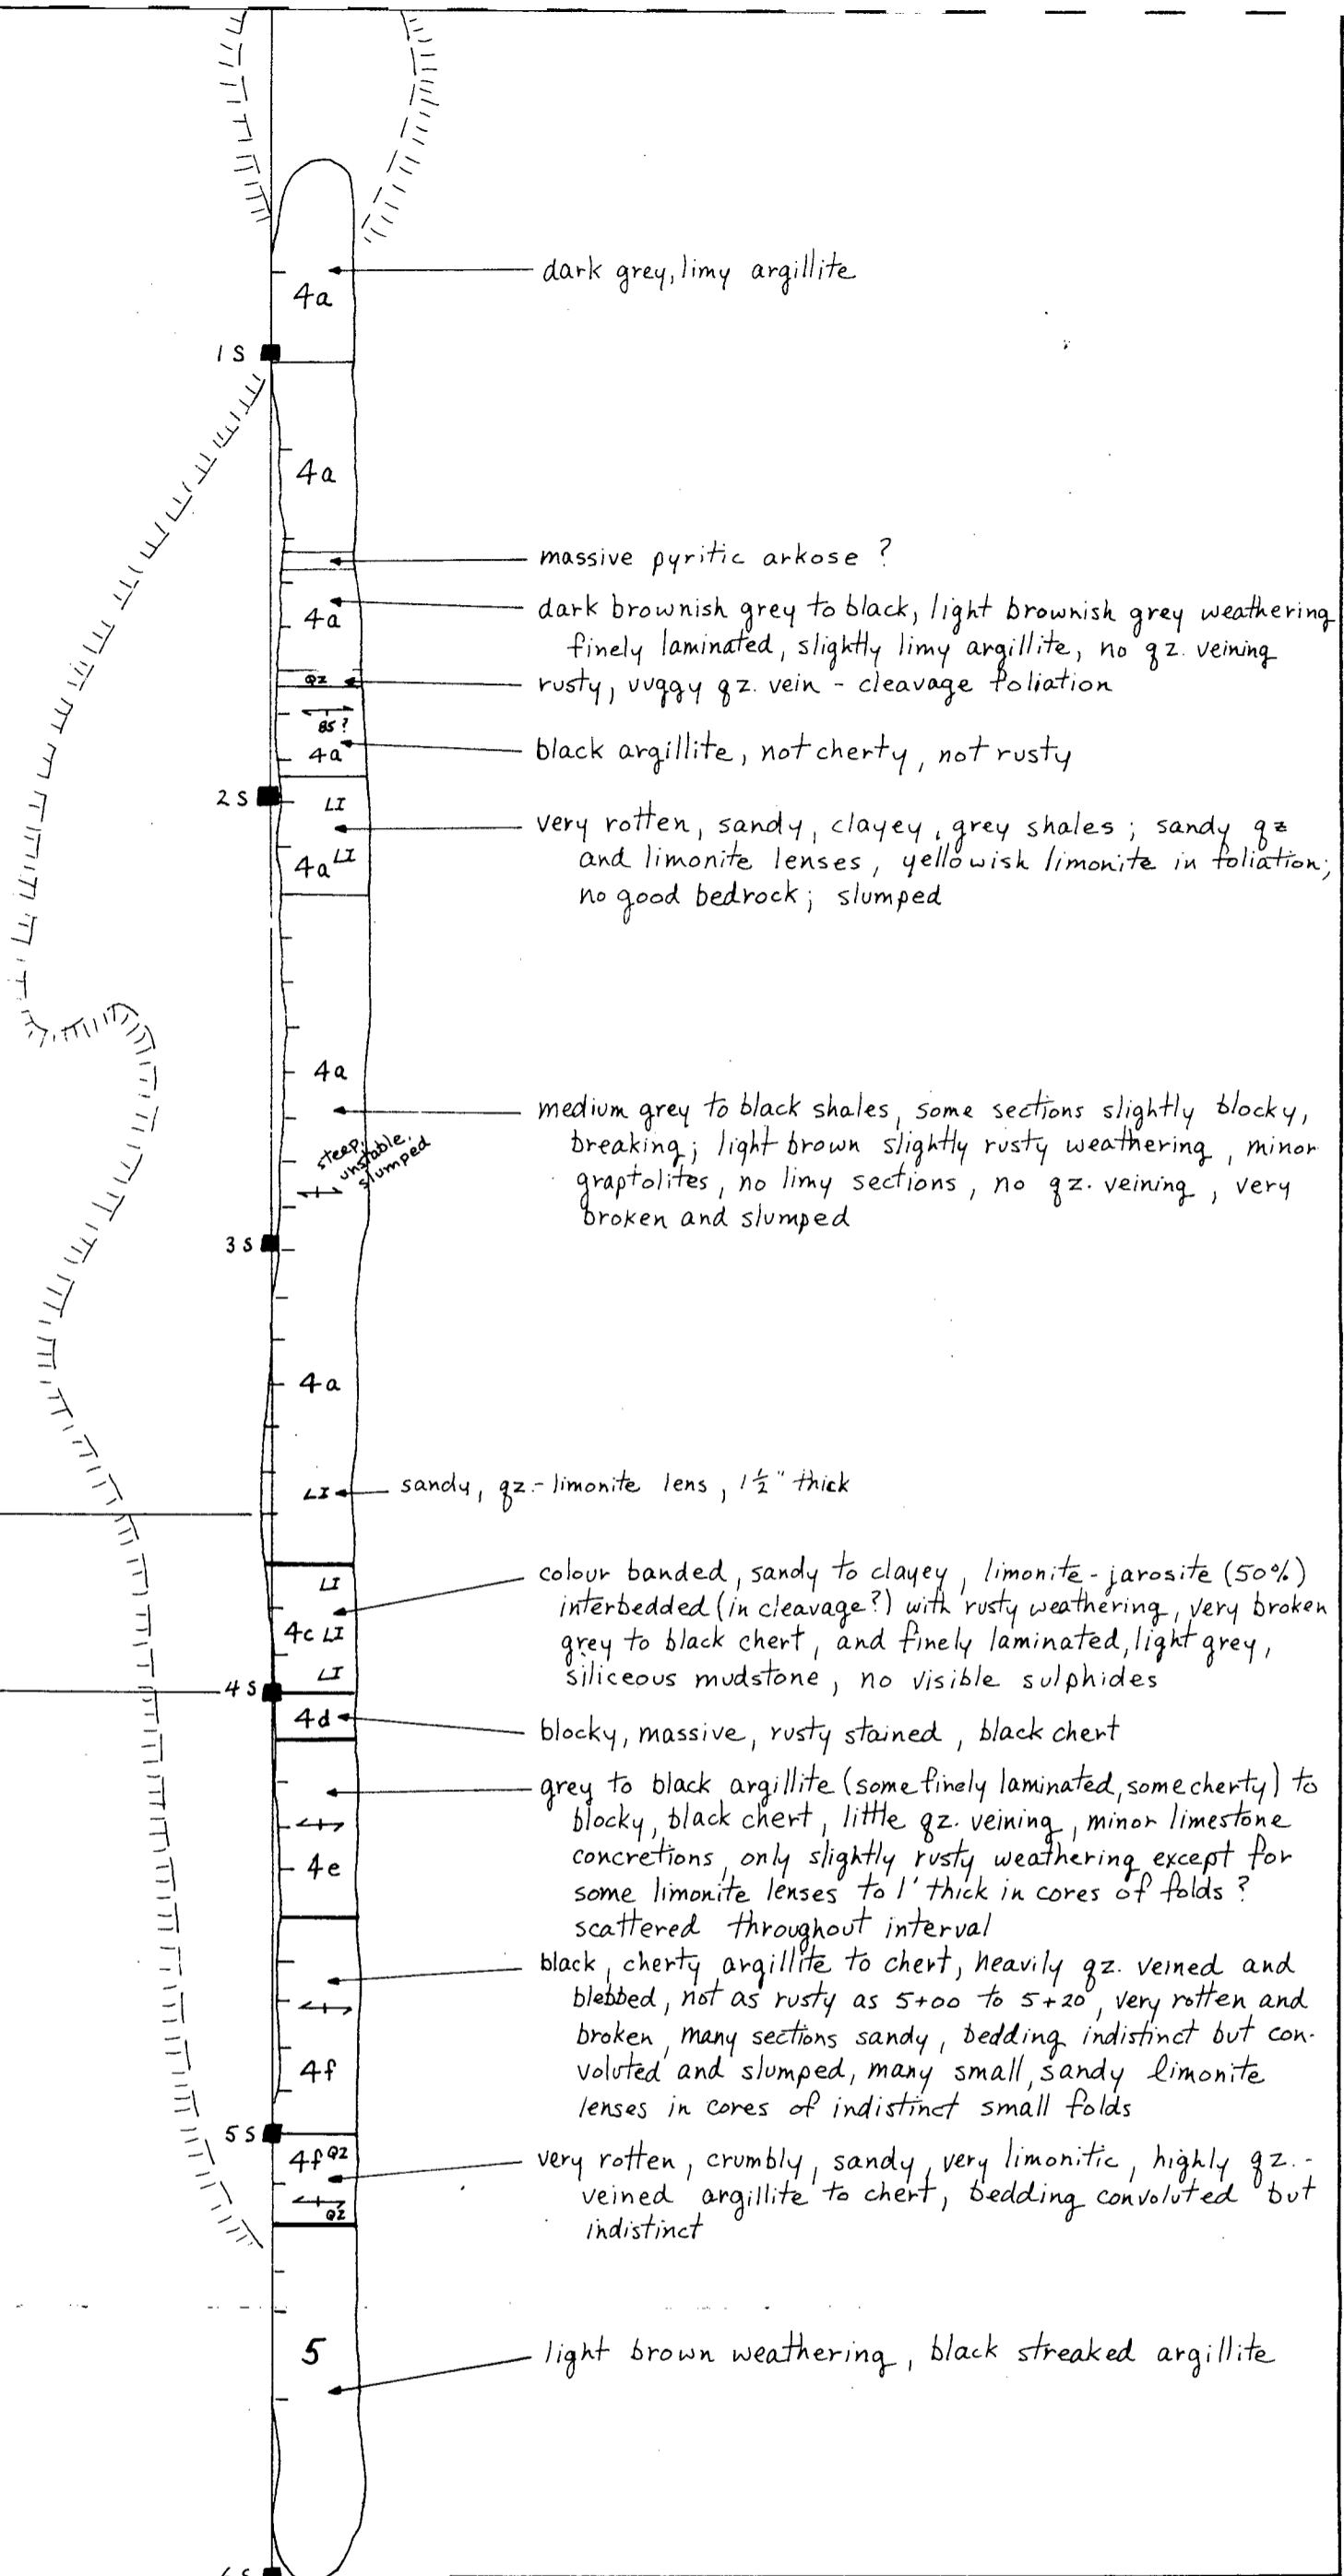 dark grey, limy argillite
4a
1 S
4a
massive pyritic arkose ?
dark brownish grey to black, light brownish grey weathering
4a
finely laminated, slightly limy argillite, no qz. veining
QZ
rusty, vuggy qz. vein - cleavage foliation
85 ?
4a
black argillite, not cherty, not rusty
2 S
LI
very rotten, sandy, clayey, grey shales ; sandy qz
4a LI
and limonite lenses, yellowish limonite in foliation;
no good bedrock; slumped
4a
medium grey to black shales, some sections slightly blocky,
breaking; light brown slightly rusty weathering, minor
steep,
unstable,
slumped
graptolites, no limy sections, no qz. veining, very
broken and slumped
3 S
4a
LI
sandy, qz.-limonite lens, 1½" thick
colour banded, sandy to clayey, limonite - jarosite (50%)
LI
interbedded (in cleavage?) with rusty weathering, very broken
4c LI
grey to black chert, and finely laminated, light grey,
LI
siliceous mudstone, no visible sulphides
4 S
4d
blocky, massive, rusty stained, black chert
grey to black argillite (some finely laminated, some cherty) to
blocky, black chert, little qz. veining, minor limestone
4e
concretions, only slightly rusty weathering except for
some limonite lenses to 1' thick in cores of folds ?
scattered throughout interval
black, cherty argillite to chert, heavily qz. veined and
blebbed, not as rusty as 5+00 to 5+20, very rotten and
broken, many sections sandy, bedding indistinct but con-
4f
voluted and slumped, many small, sandy limonite
lenses in cores of indistinct small folds
5 S
4f QZ
very rotten, crumbly, sandy, very limonitic, highly qz.-
veined argillite to chert, bedding convoluted but
QZ
indistinct
5
light brown weathering, black streaked argillite